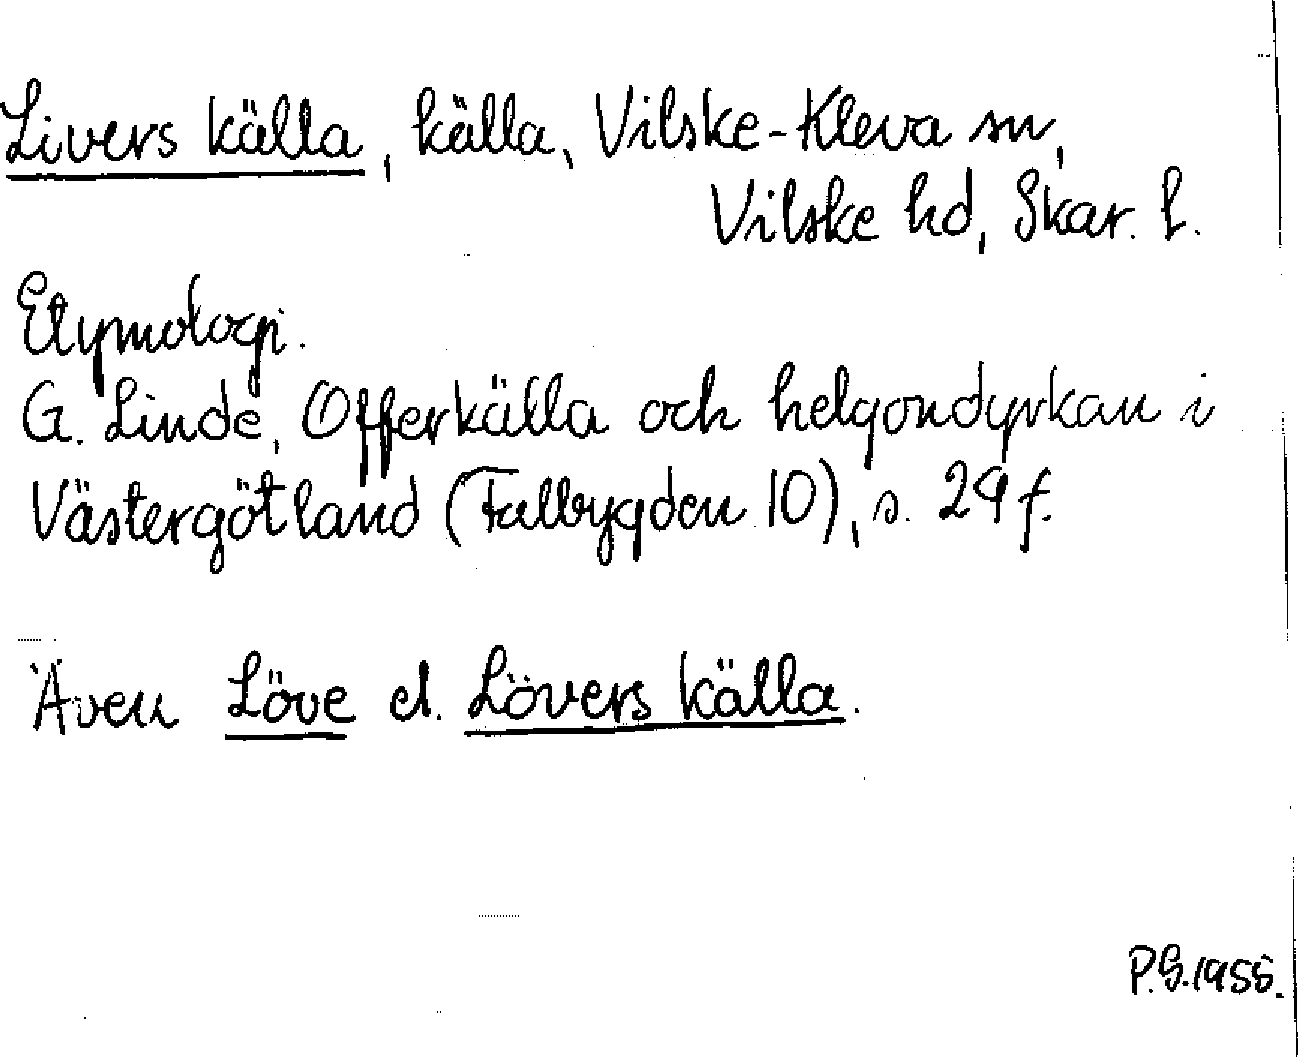 Livers källa, källa, Vilske-Kleva sn,
Vilske hd, Skar. l.
Etymologi.
G. Linde, Offerkälla och helgondyrkan i
Västergötland (Falbygden 10), s. 29 f.
Även Löve el. Lövers källa.
P.G. 1955.